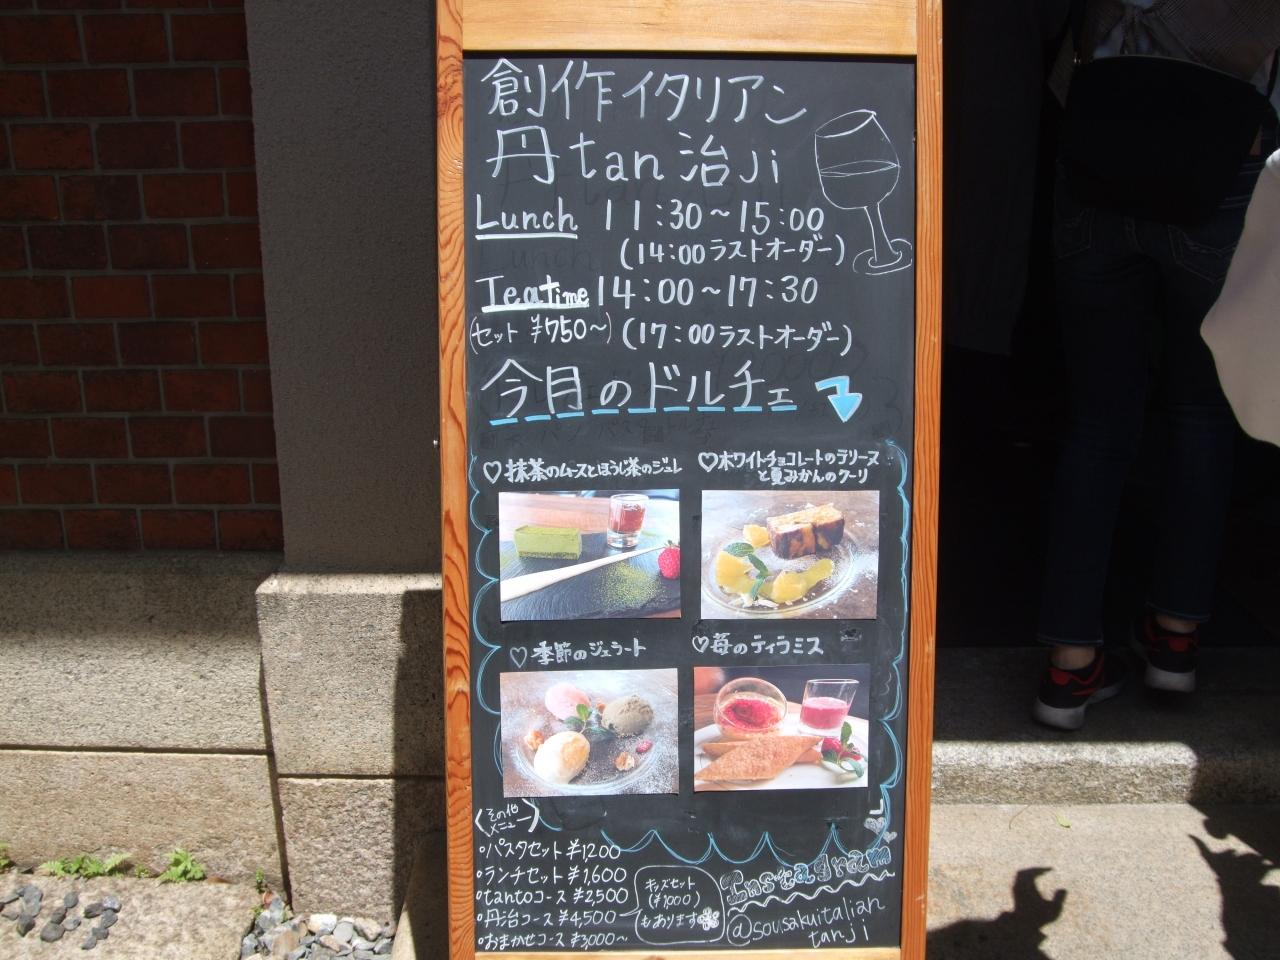 創作イタリアン
丹tan治ji
Lunch 11:30～15:00
(14:00ラストオーダー)
Teatime 14:00～17:30
(セット ¥750～) (17:00ラストオーダー)
今月のドルチェ
♡抹茶のムースとほうじ茶のジュレ
♡ホワイトチョコレートのテリーヌ
と夏みかんのクーリ
♡季節のジェラート
♡苺のティラミス
〈その他
メニュー〉
・パスタセット ¥1,200
・ランチセット ¥1,600
・tantoコース ¥2,500
・丹治コース ¥4,500
・おまかせコース ¥3,000～
キッズセット
(¥1000)
もあります
Instagram
@sousakuitalian
tanji